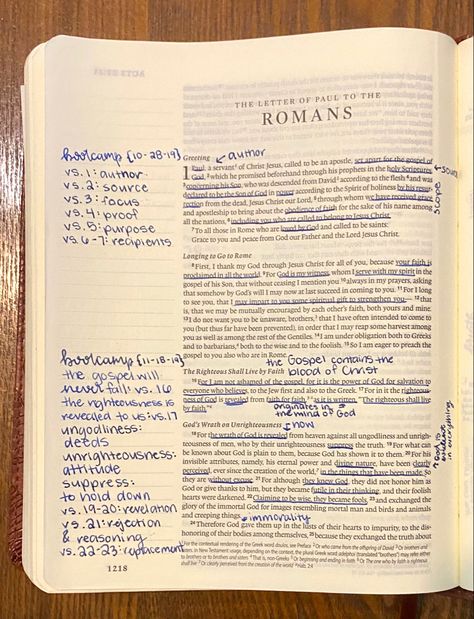 THE LETTER OF PAUL TO THE
ROMANS
bootcamp [10-28-19]
vs. 1: author
vs. 2: source
vs. 3: focus
vs. 4: proof
vs. 5: purpose
vs. 6-7: recipients
bootcamp [11-18-19]
the gospel will
never fail: vs. 16
the righteousness is
revealed to us: vs. 17
ungodliness:
deeds
unrighteousness:
attitude
suppress:
to hold down
vs. 19-20: revelation
vs. 21: rejection
& reasoning
vs. 22-23: replacement
Greeting
author
1 Paul, a servant of Christ Jesus, called to be an apostle, set apart for the gospel of
God, 2 which he promised beforehand through his prophets in the holy Scriptures,
3 concerning his Son, who was descended from David according to the flesh 4 and was
declared to be the Son of God in power according to the Spirit of holiness by his resur-
rection from the dead, Jesus Christ our Lord, 5 through whom we have received grace
and apostleship to bring about the obedience of faith for the sake of his name among
all the nations, 6 including you who are called to belong to Jesus Christ,
7 To all those in Rome who are loved by God and called to be saints:
Grace to you and peace from God our Father and the Lord Jesus Christ.
scope
Longing to Go to Rome
8 First, I thank my God through Jesus Christ for all of you, because your faith is
proclaimed in all the world. 9 For God is my witness, whom I serve with my spirit in
the gospel of his Son, that without ceasing I mention you 10 always in my prayers, asking
that somehow by God's will I may now at last succeed in coming to you. 11 For I long
to see you, that I may impart to you some spiritual gift to strengthen you— 12 that
is, that we may be mutually encouraged by each other's faith, both yours and mine.
13 I do not want you to be unaware, brothers, that I have often intended to come to
you (but thus far have been prevented), in order that I may reap some harvest among
you as well as among the rest of the Gentiles. 14 I am under obligation both to Greeks
and to barbarians, both to the wise and to the foolish. 15 So I am eager to preach the
gospel to you also who are in Rome.
the Gospel contains the
blood of Christ
The Righteous Shall Live by Faith
16 For I am not ashamed of the gospel, for it is the power of God for salvation to
everyone who believes, to the Jew first and also to the Greek. 17 For in it the righteous-
ness of God is revealed from faith for faith, as it is written, "The righteous shall live
by faith."
originates in
the mind of God
God's Wrath on Unrighteousness
now
18 For the wrath of God is revealed from heaven against all ungodliness and unrigh-
teousness of men, who by their unrighteousness suppress the truth. 19 For what can
be known about God is plain to them, because God has shown it to them. 20 For his
invisible attributes, namely, his eternal power and divine nature, have been clearly
perceived, ever since the creation of the world, in the things that have been made. So
they are without excuse. 21 For although they knew God, they did not honor him as
God or give thanks to him, but they became futile in their thinking, and their foolish
hearts were darkened. 22 Claiming to be wise, they became fools, 23 and exchanged the
glory of the immortal God for images resembling mortal man and birds and animals
and creeping things.
immorality
24 Therefore God gave them up in the lusts of their hearts to impurity, to the dis-
honoring of their bodies among themselves, 25 because they exchanged the truth about
1218